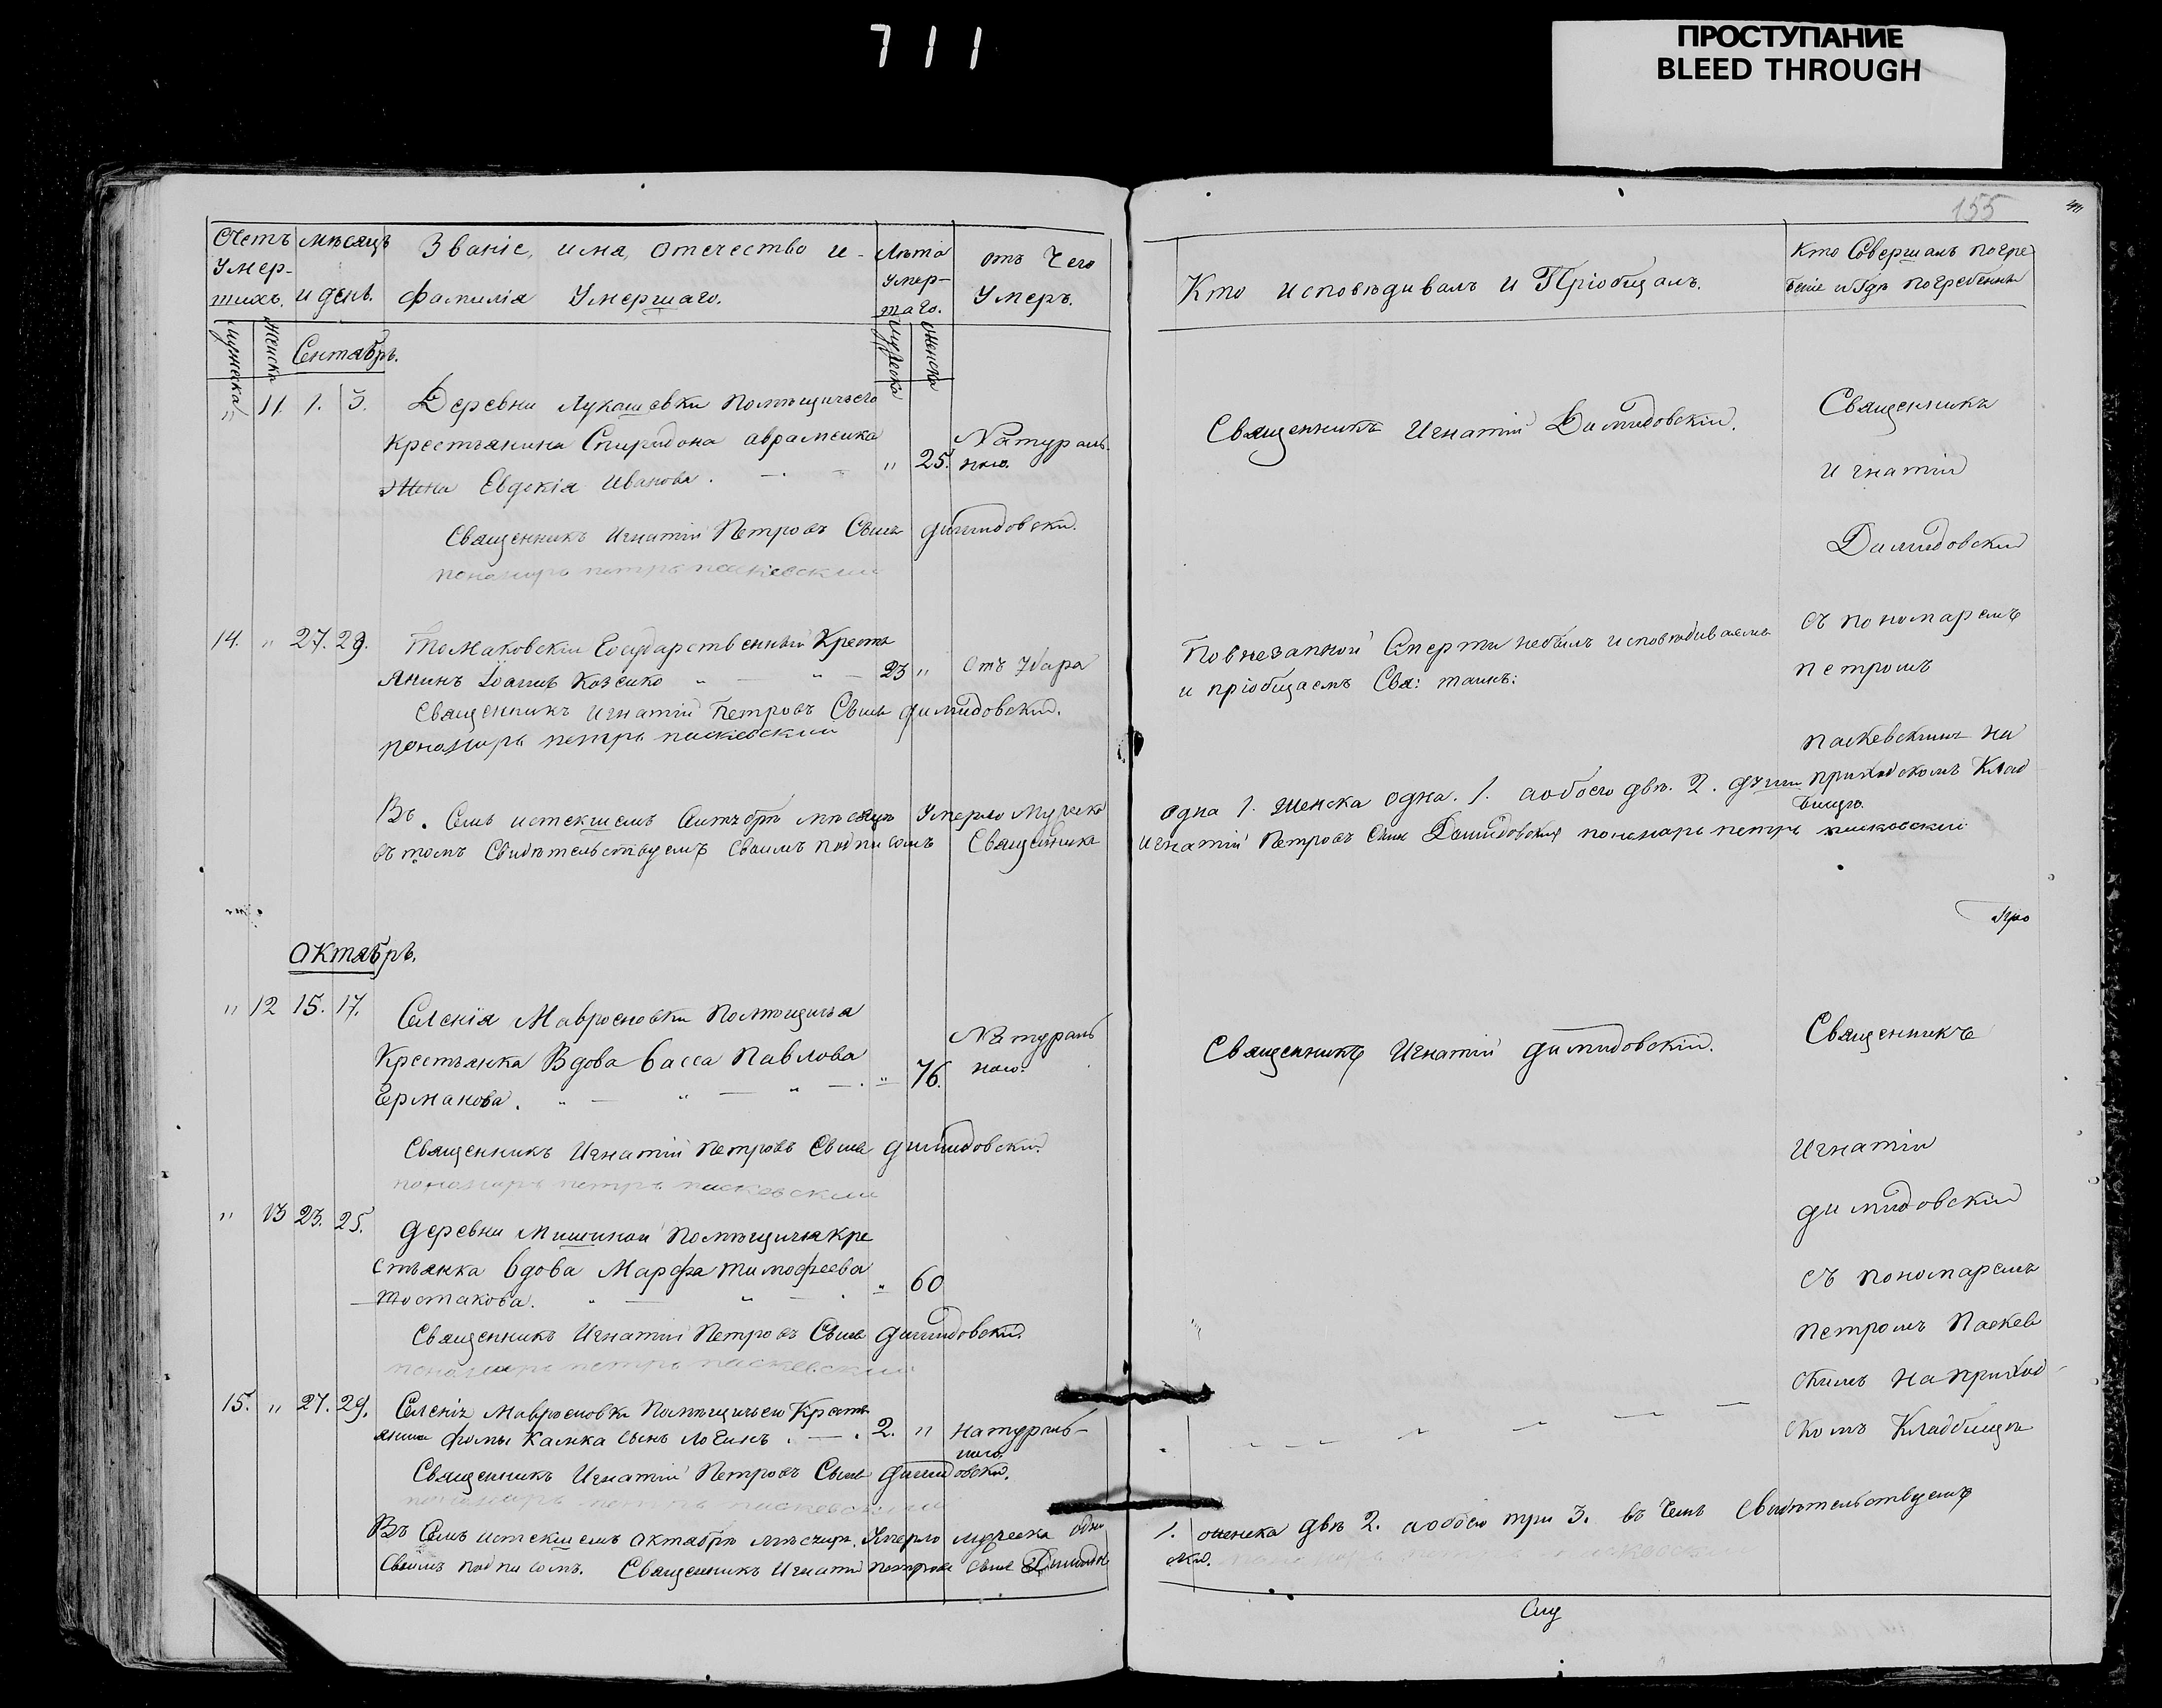 711
ПРОСТУПАНИЕ
BLEED THROUGH
155
Счетъ Умер-шихъ.
мѣсяцъ и день.
Званіе, имя, отечество и фамилія Умершаго.
Лѣта Умер-шаго.
отъ Чего Умеръ.
Кто исповѣдивалъ и Пріобщалъ.
Кто Совершалъ погребеніе и Гдѣ погребенны
мужеска
женска
мужеска
женска
Сентябрь.
" 11. 1. 3. Деревни Лукашевки помѣщичьего
крестьянина Спиридона авраменка
Жена Евдокія Иванова. " 25. Натураль-
ною.
Священникъ Игнатій Димидовскій.
Священникъ Игнатій Петровъ Сынъ Димидовскій.
пономарь петръ паскевскии
14. " 27. 29. Томаковскій Государственный Кресть
янинъ Іоаннъ Козенко 23 " Отъ Удара
По внезапной Смерти небылъ исповѣдиваемъ
и пріобщаемъ Свя: таинъ:
Священникъ Игнатій Петровъ Сынъ Димидовскій.
пономарь петръ паскевскии
Священникъ
Игнатій
Димидовскій
съ пономаремъ
петромъ
паскевскимъ на
приходскомъ Клад
бищѣ.
Въ Семъ истекшемъ Сентябрѣ мѣсяцѣ Умерло мужеска одна 1. женска одна. 1. а обоего двѣ. 2. души
въ томъ Свидѣтельствуемъ Своимъ подписомъ Священникъ Игнатій Петровъ Сынъ Димидовскій пономарь петръ паскевскии
октябрь.
" 12 15. 17. Селенія Мавроеновки помѣщичья
Крестьянка Вдова Васса Павлова
Ерманова. " 76. Натураль
ною.
Священникъ Игнатій Димидовскій.
Священникъ Игнатій Петровъ Сынъ Димидовскій.
пономарь петръ паскевскии
" 13 23. 25. деревни Мишиной помѣщичья кре
стьянка Вдова Марфа Тимофеева
Шостакова. " 60
Священникъ Игнатій Петровъ Сынъ Димидовскій.
пономарь петръ паскевскии
15. " 27. 29. Селенія Мавроеновки Помѣщичьего Кресть
янина Фомы Камка сынъ Логинъ. 2. " натураль-
ною.
Священникъ Игнатій Петровъ Сынъ Димидовскій.
пономарь петръ паскевскии
Священникъ
Игнатій
Димидовскій
съ пономаремъ
петромъ Паскев
скимъ на приход
скомъ Кладбищѣ
Въ Семъ истекшемъ октябрѣ мѣсяцѣ Умерло мужеска одна 1. женска двѣ 2. а обоего три 3. въ Чемъ Свидѣтельствуемъ
Своимъ подписомъ. Священникъ Игнатій Петровъ Сынъ Димидовскій.